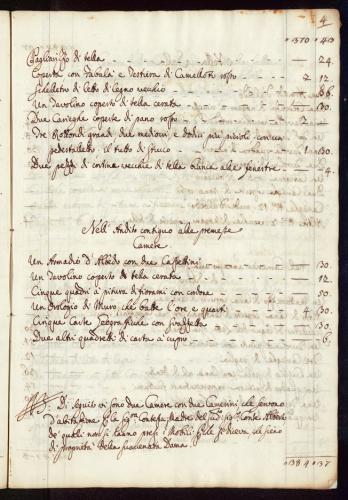 4
1370 43
Pagliarizzo di tella — 24.
Coperta con Tavolà e Testiera di Camellotto rosso 2 12.
Fidelletto di letto di legno vecchio — 86.
Un Tavolino coperto di tella cerata — 30.
Due Carieghe coperte di pano rosso 2 —
Tre Rottondi grandi due mediocri e dodici più piccoli con un
pedestalletto il tutto di stuco 1 30.
Due pezze di cortine vecchie di tella bianca alle fenestre — 4.
Nell' Andito contiguo alle premesse
Camere
Un Armadio d'Albedo con due Casettini — 30.
Un Tavolino coperto di tella cerata — 12.
Cinque quadri à pitura di fiorami con cordone — 50.
Un Orologio di Muro che batte l'ore e quarti 4 30.
Cinque carte Geografiche con — 30.
Due altri quadretti di carta à cupro — 6.
Di seguito vi sono due Camere con due Camerini che servono
d'abitazione per la Sig.ra Contessa Madre del Sig.r Conte Alberto
de quali non si fanno presi Mobili
di proprietà della Dama
1384 37